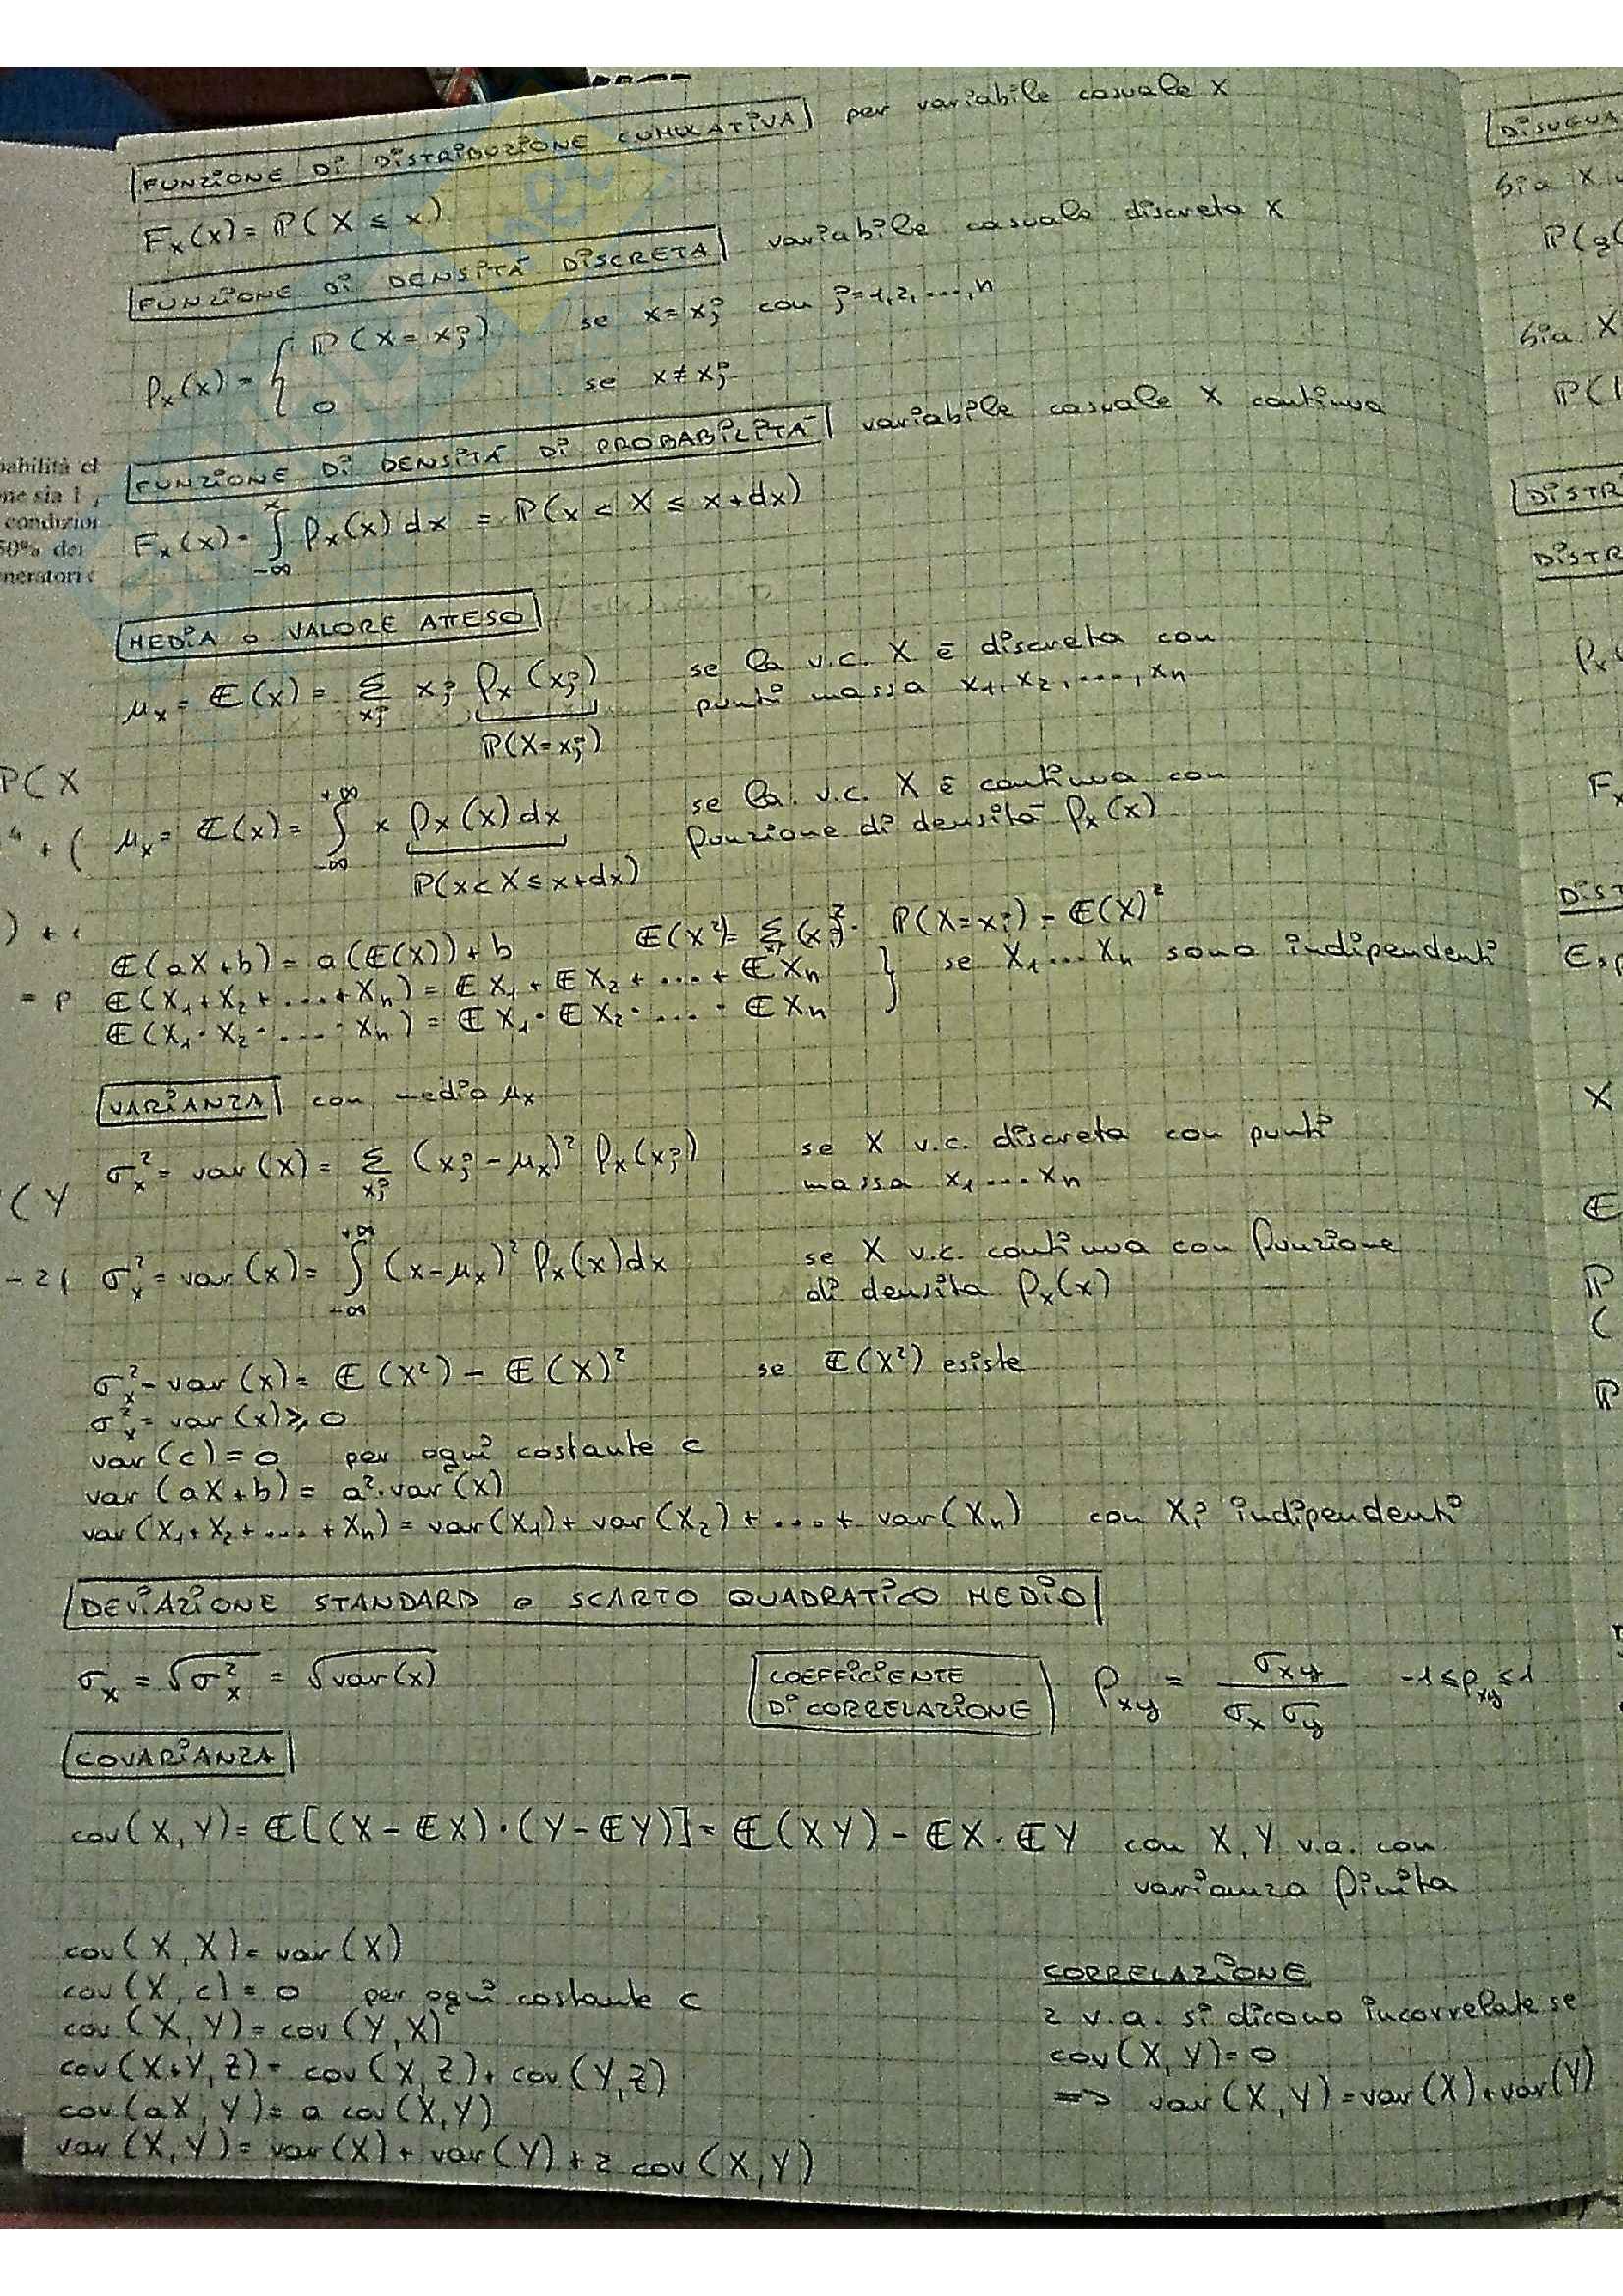 FUNZIONE DI DISTRIBUZIONE CUMULATIVA per variabile casuale X
F_x(x) = ℙ(X ≤ x)
FUNZIONE DI DENSITÀ DISCRETA variabile casuale discreta X
f_x(x) = { ℙ(X = x_j) se x = x_j con j = 1, 2, ..., n
0 se x ≠ x_j
FUNZIONE DI DENSITÀ DI PROBABILITÀ variabile casuale X continua
F_x(x) = ∫_{-∞}^{x} f_x(x) dx = ℙ(x < X ≤ x + dx)
MEDIA o VALORE ATTESO
μ_x = 𝔼(x) = Σ_{x_j} x_j f_x(x_j) se la v.c. X è discreta con
punti massa x_1, x_2, ..., x_n
ℙ(X = x_j)
μ_x = 𝔼(x) = ∫_{-∞}^{+∞} x f_x(x) dx se la v.c. X è continua con
funzione di densità f_x(x)
ℙ(x < X ≤ x + dx)
𝔼(X²) = Σ (x_i)² · ℙ(X = x_i) = 𝔼(X)²
𝔼(aX + b) = a(𝔼(X)) + b
𝔼(X_1 + X_2 + .... + X_n) = 𝔼X_1 + 𝔼X_2 + .... + 𝔼X_n } se X_1 ... X_n sono indipendenti
𝔼(X_1 · X_2 · .... · X_n) = 𝔼X_1 · 𝔼X_2 · .... · 𝔼X_n
VARIANZA con media μ_x
σ_x² = var(X) = Σ_{x_j} (x_j - μ_x)² f_x(x_j) se X v.c. discreta con punti
massa x_1 ... x_n
σ_x² = var(x) = ∫_{-∞}^{+∞} (x - μ_x)² f_x(x) dx se X v.c. continua con funzione
di densità f_x(x)
σ_x² = var(x) = 𝔼(X²) - 𝔼(X)² se 𝔼(X²) esiste
σ_x² = var(x) ≥ 0
var(c) = 0 per ogni costante c
var(aX + b) = a² · var(X)
var(X_1 + X_2 + .... + X_n) = var(X_1) + var(X_2) + .... + var(X_n) con X_i indipendenti
DEVIAZIONE STANDARD o SCARTO QUADRATICO MEDIO
σ_x = √σ_x² = √var(x)
COEFFICIENTE
DI CORRELAZIONE
ρ_xy = σ_xy / σ_x σ_y -1 ≤ ρ_xy ≤ 1
COVARIANZA
cov(X, Y) = 𝔼[(X - 𝔼X) · (Y - 𝔼Y)] = 𝔼(XY) - 𝔼X · 𝔼Y con X, Y v.a. con
varianza finita
cov(X, X) = var(X)
cov(X, c) = 0 per ogni costante c
cov(X, Y) = cov(Y, X)
cov(X+Y, Z) = cov(X, Z) + cov(Y, Z)
cov(aX, Y) = a cov(X, Y)
var(X, Y) = var(X) + var(Y) + 2 cov(X, Y)
CORRELAZIONE
2 v.a. si dicono incorrelate se
cov(X, Y) = 0
=> var(X, Y) = var(X) + var(Y)
condizion
50% dei
neratori
ne sia 1
P(X
(Y
DISUGUA
Sia X
ℙ(g(
Sia X
ℙ(|
DISTRI
DISTR
f_x
F_x
DIST
Esp
X
𝔼
ℙ
(
ℙ